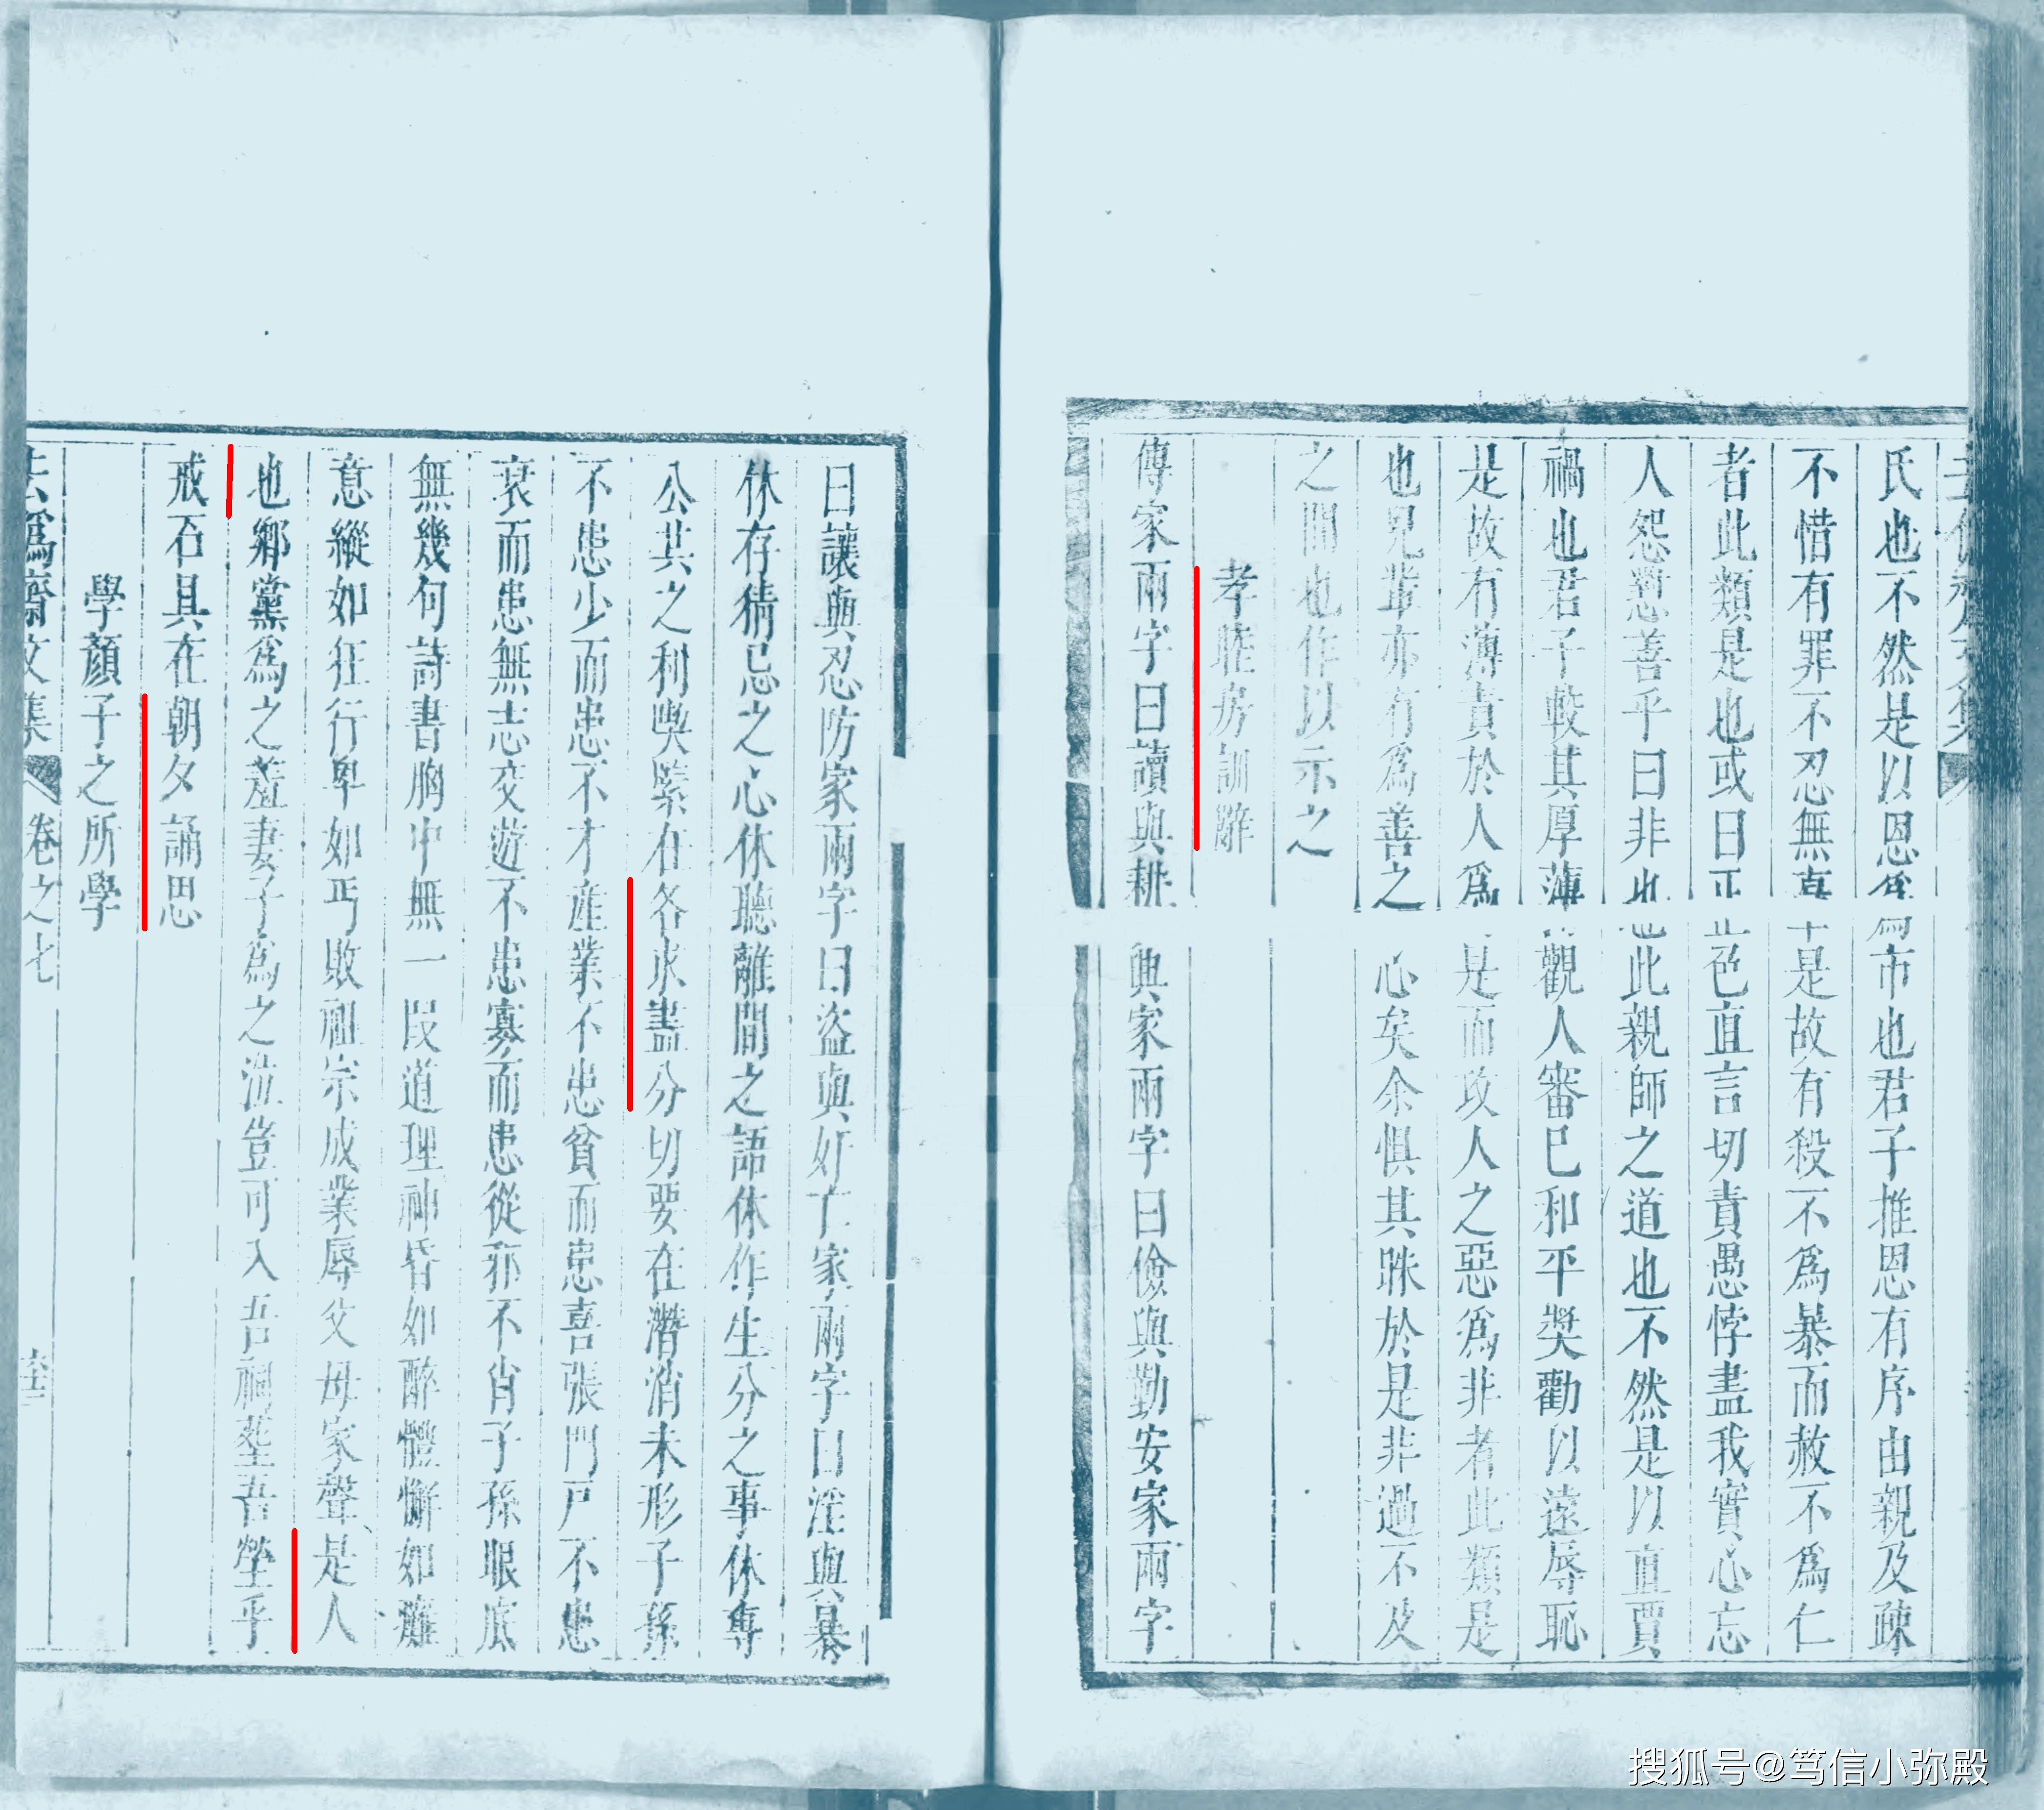 氏也不然是以恩爲市也君子推恩有序由親及疎
不惜有罪不忍無是故有殺不爲暴而赦不爲仁
者此類是也或曰正色直言切責愚悖盡我實心忘
人怨懟善乎曰非也此親師之道也不然是以直賈
禍也君子較其厚薄觀人審已和平奬勸以遠辱恥
是故有薄責於人爲是而攻人之惡爲非者此類是
也兄輩亦有爲善之心矣余惧其眯於是非過不及
之間也作以示之
孝睦房訓辭
傳家兩字曰讀與耕興家兩字曰儉與勤安家兩字
曰讓與忍防家兩字曰盗與奸亡家兩字曰淫與暴
休存猜忌之心休聽離間之語休作生分之事休專
公共之利喫緊在各求盡分切要在潛消未形子孫
不患少而患不才産業不患貧而患喜張門戸不患
衰而患無志交遊不患寡而患從邪不肖子孫眼底
無幾句詩書胸中無一段道理神昏如醉體懈如癱
意縱如狂行卑如丐敗祖宗成業辱父母家聲是人
也鄉黨爲之羞妻子爲之泣豈可入吾祠塟吾塋乎
戒石具在朝夕誦思
學顏子之所學
去僞齋文集 卷之七
搜狐号@笃信小弥殿